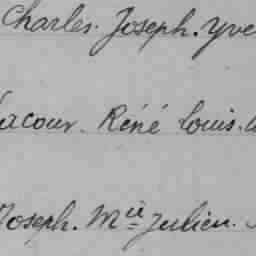 Charles. Joseph. Yve
Lacour. Réné Louis.
Joseph. M^ie Julien.